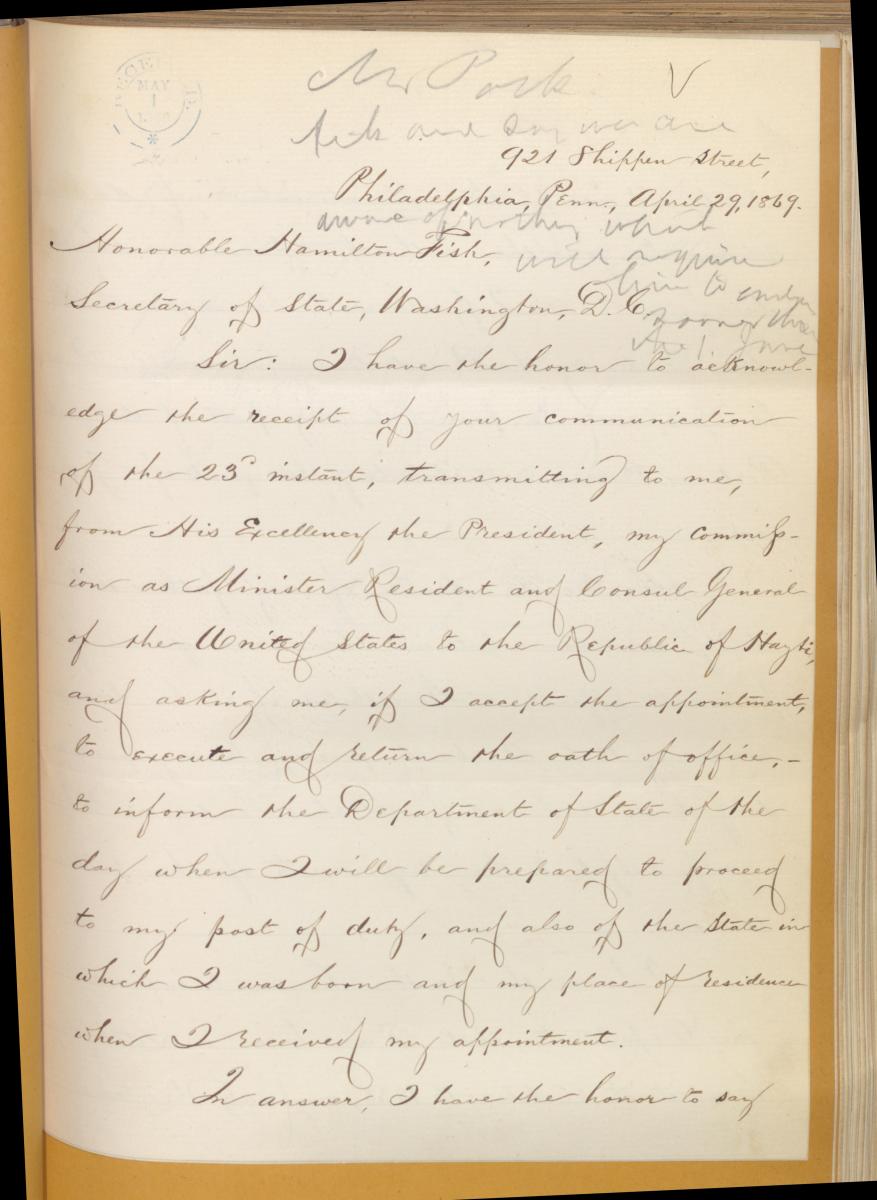 MAY
1
Mr Park
and say we are
921 Shippen Street,
Philadelphia, Penn., April 29, 1869.
aware of nothing which
Honorable Hamilton Fish,
will require
him to
Secretary of State, Washington, D. C.
sooner than
the 1 June
Sir: I have the honor to acknowl-
edge the receipt of your communication
of the 23d instant, transmitting to me,
from His Excellency the President, my commiss-
ion as Minister Resident and Consul General
of the United States to the Republic of Hayti,
and asking me, if I accept the appointment,
to execute and return the oath of office,-
to inform the Department of State of the
day when I will be prepared to proceed
to my post of duty, and also of the State in
which I was born and my place of residence
when I received my appointment.
In answer, I have the honor to say